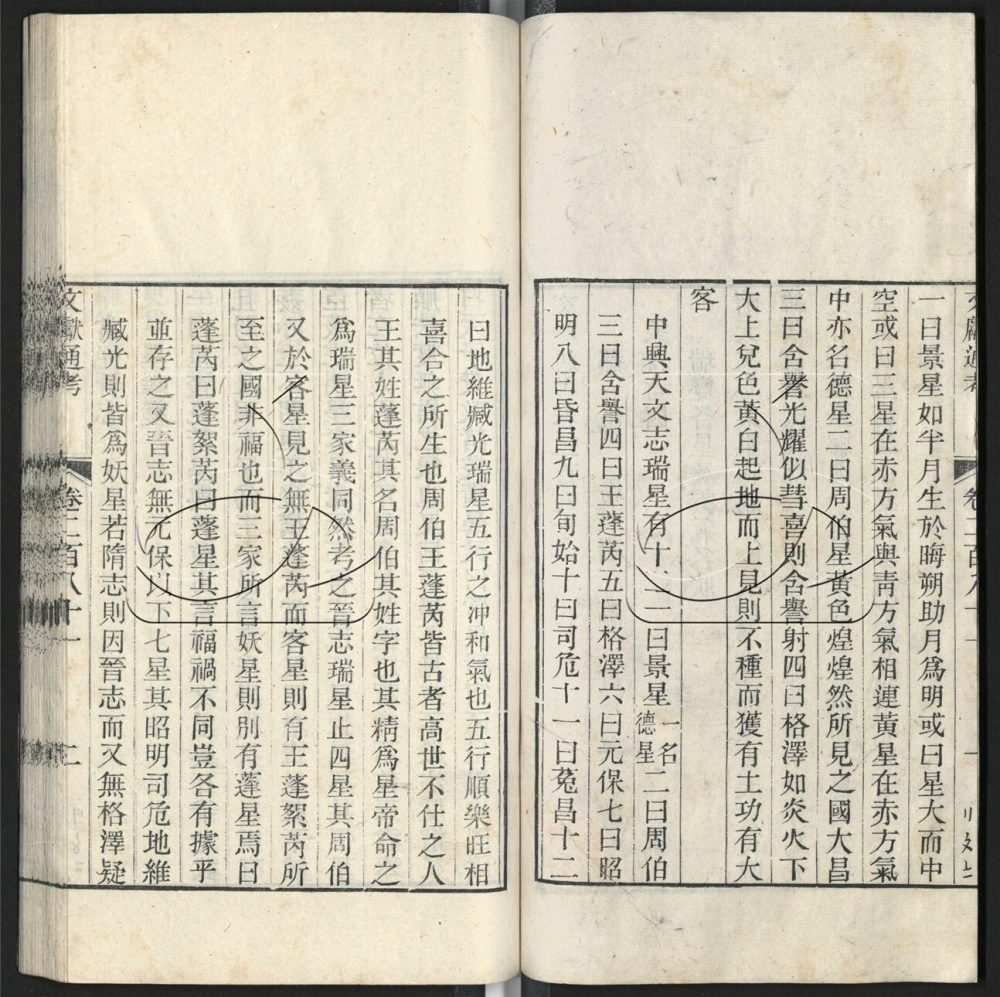 一曰景星如半月生於晦朔助月爲明或曰星大而中
空或曰三星在赤方氣與青方氣相連黃星在赤方氣
中亦名德星二曰周伯星黃色煌煌然所見之國大昌
三曰含譽光耀似彗喜則含譽射四曰格澤如炎火下
大上兌色黃白起地而上見則不種而獲有土功有大
客
中興天文志瑞星有十二一曰景星一名德星二曰周伯
三曰含譽四曰王蓬芮五曰格澤六曰元保七曰昭
明八曰昏昌九曰旬始十曰司危十一曰菟昌十二
文獻通考 卷二百八十一 二
曰地維臧光瑞星五行之冲和氣也五行順樂旺相
喜合之所生也周伯王蓬芮皆古者高世不仕之人
王其姓蓬芮其名周伯其姓字也其精爲星帝命之
爲瑞星三家義同然考之晉志瑞星止四星其周伯
又於客星見之無王蓬芮而客星則有王蓬絮芮所
至之國非福也而三家所言妖星則別有蓬星焉曰
蓬芮曰蓬絮芮曰蓬星其言福禍不同豈各有據乎
並存之又晉志無元保以下七星其昭明司危地維
臧光則皆爲妖星若隋志則因晉志而又無格澤疑